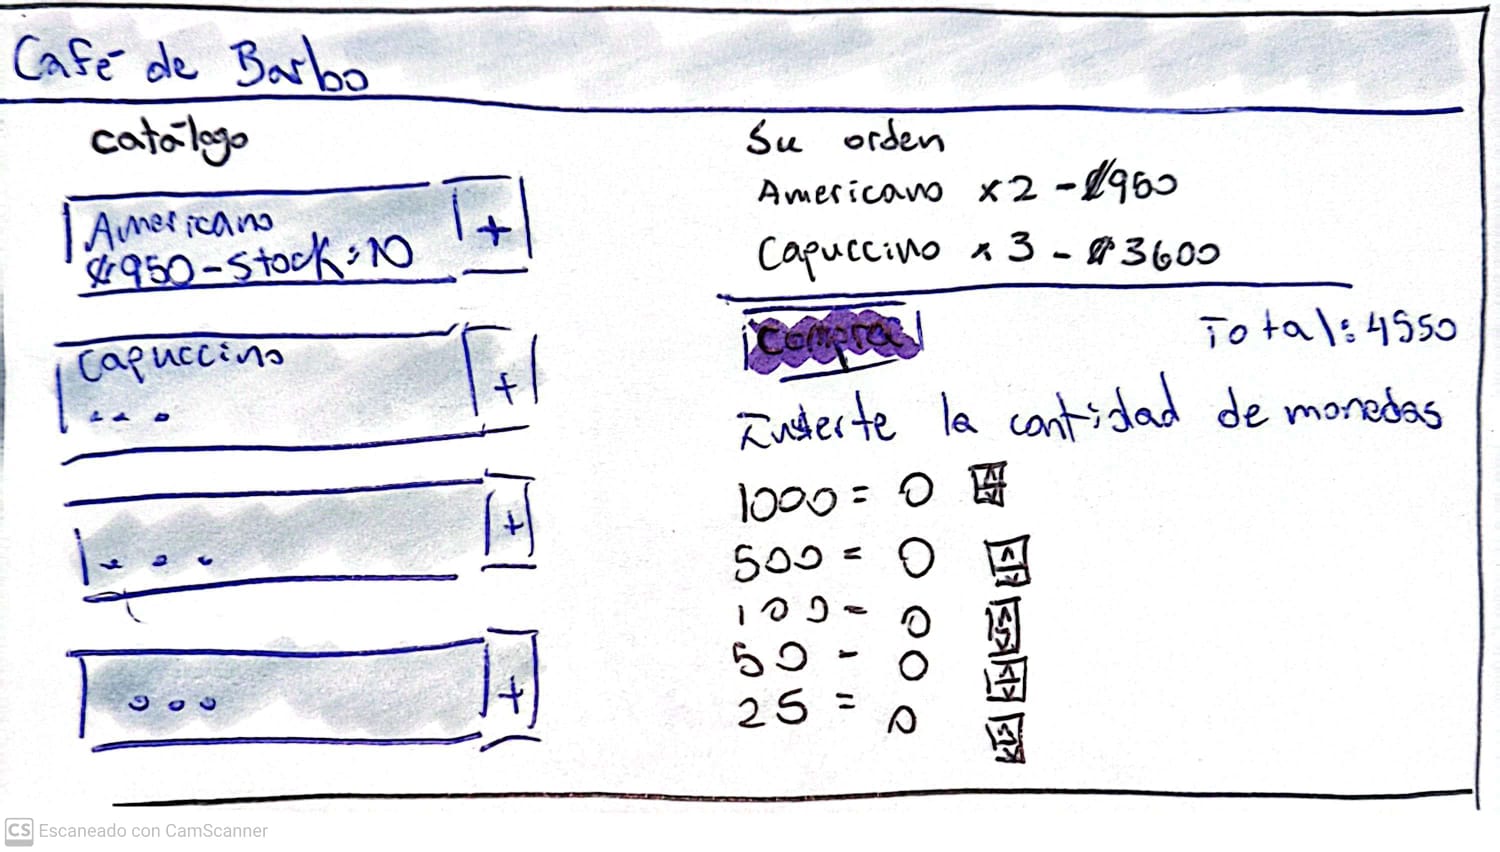 Café de Barbo
catálogo
Americano
₡950-Stock:10
+
Capuccino
...
+
...
+
...
+
Su orden
Americano x2 - ₡950
Capuccino x 3 - ₡3600
Compra
Total: 4550
Inserte la cantidad de monedas
1000 = 0
500 = 0
100 - 0
50 - 0
25 = 0
CS Escaneado con CamScanner